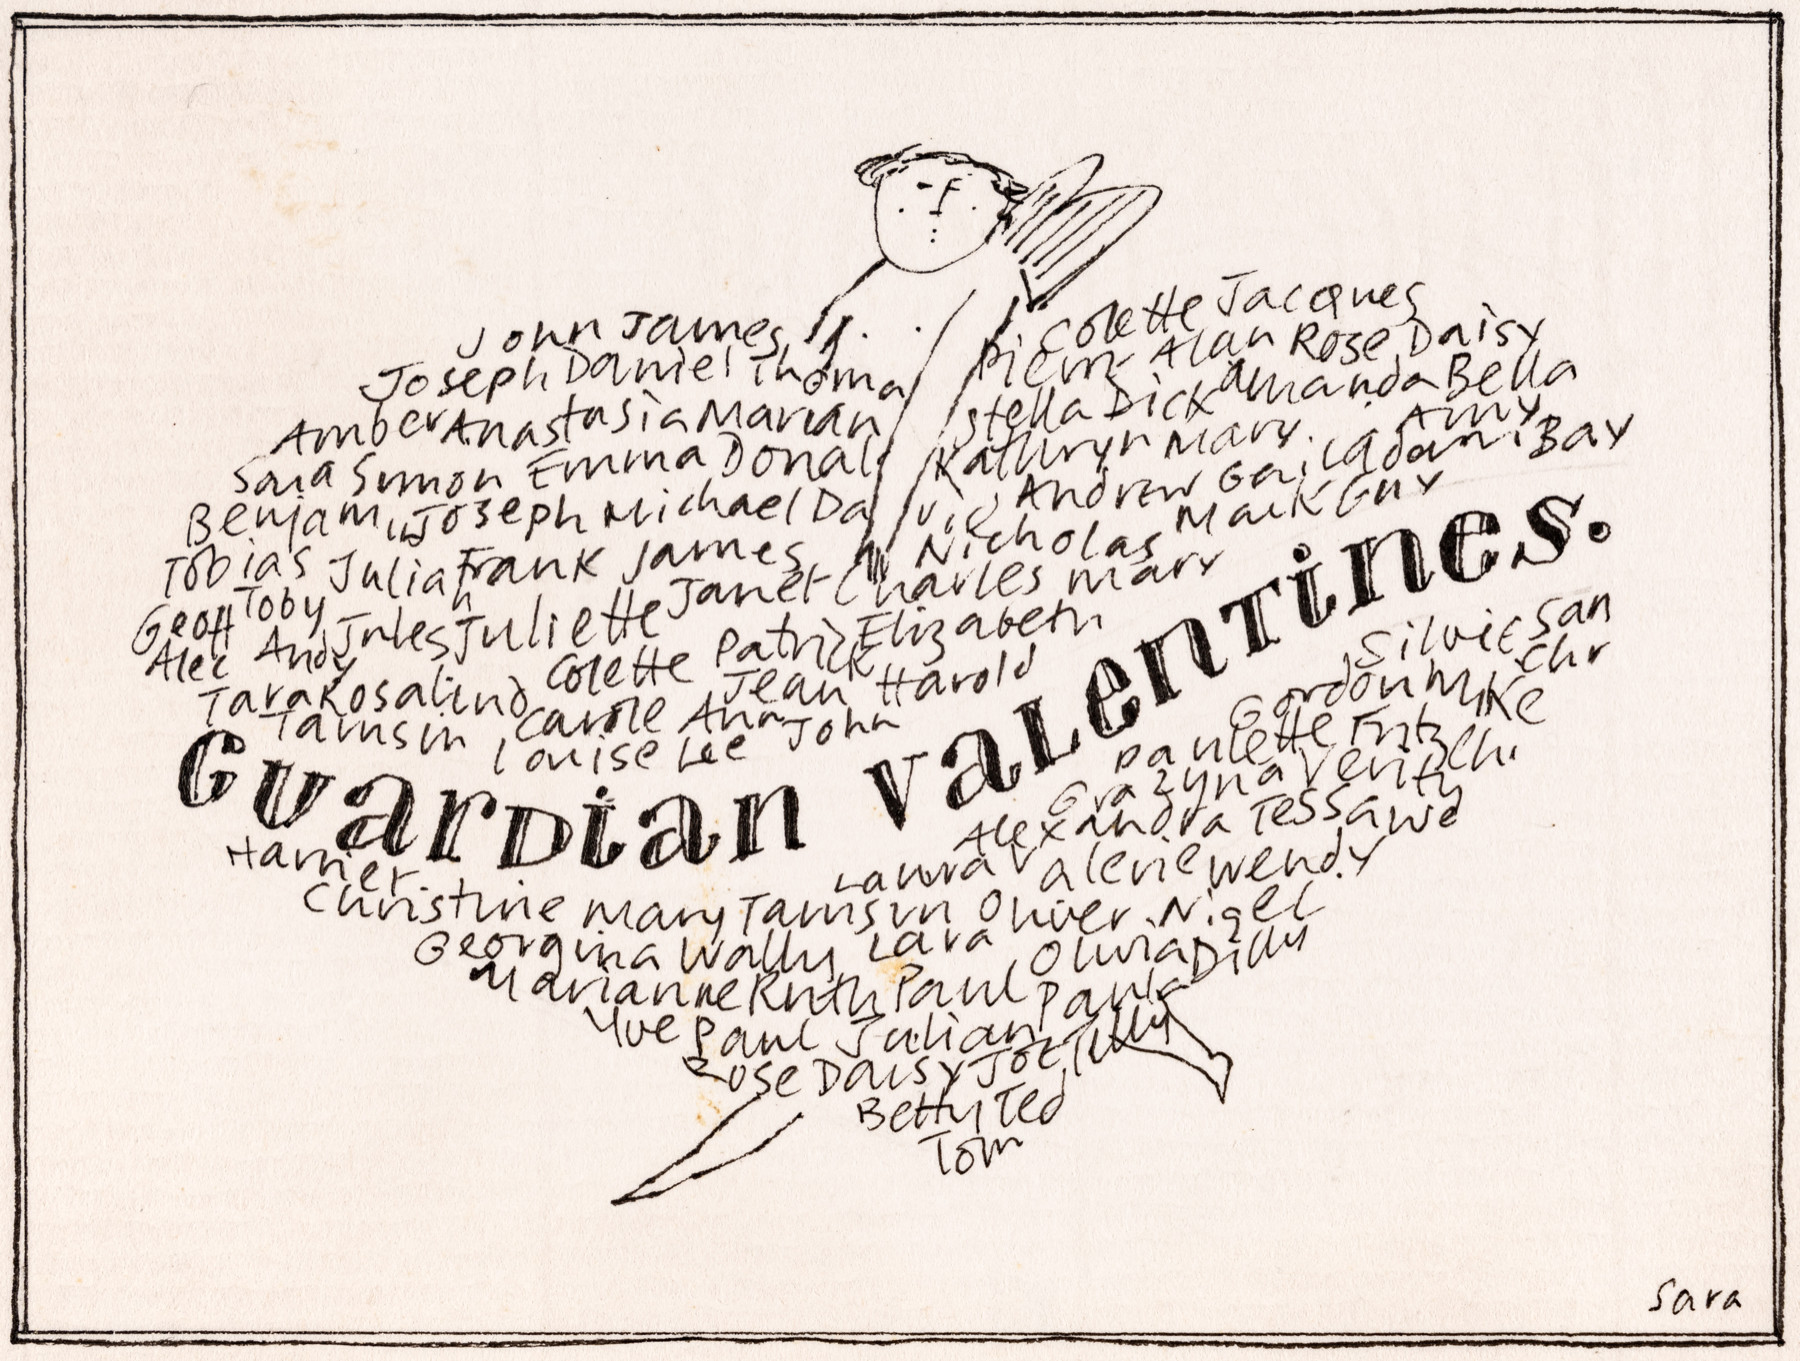 John James
Joseph Daniel Thoma
Amber Anastasia Marian
Sara Simon Emma Donal
Benjamin Joseph Michael Da
Tobias Julian Frank James
Geoff Toby Jules Juliette Janet Charles Mary
Alec Andy Colette Patrick Elizabeth
Tara Rosalind Carole Ann Jean Harold
Tamsin Louise Lee John
Colette Jacques
Pierre Alan Rose Daisy
Stella Dick Amanda Bella
Kathryn Mary. Amy
Andrew Bay
Nicholas Mark Guy
Guardian Valentines.
Silvie San
Gordon Mike Chr
Paulette Fritz
Grazyna Verity Chi
Alexandra Tessa Wed
Harriet Laura Valerie Wendy
Christine Mary Tamsin Oliver Nigel
Georgina Wally Lara Olivia Dilly
Marianne Ruth Paul Paula
Yve Paul Julian Tilly
Rose Daisy Joe
Betty Ted
Tom
Sara